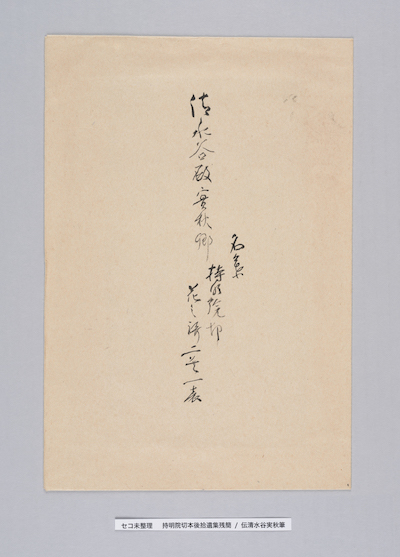 清水谷殿実秋卿
名葉
持明院切
花之済二芝一表
セコ未整理 持明院切本後拾遺葉残簡 / 伝清水谷実秋筆